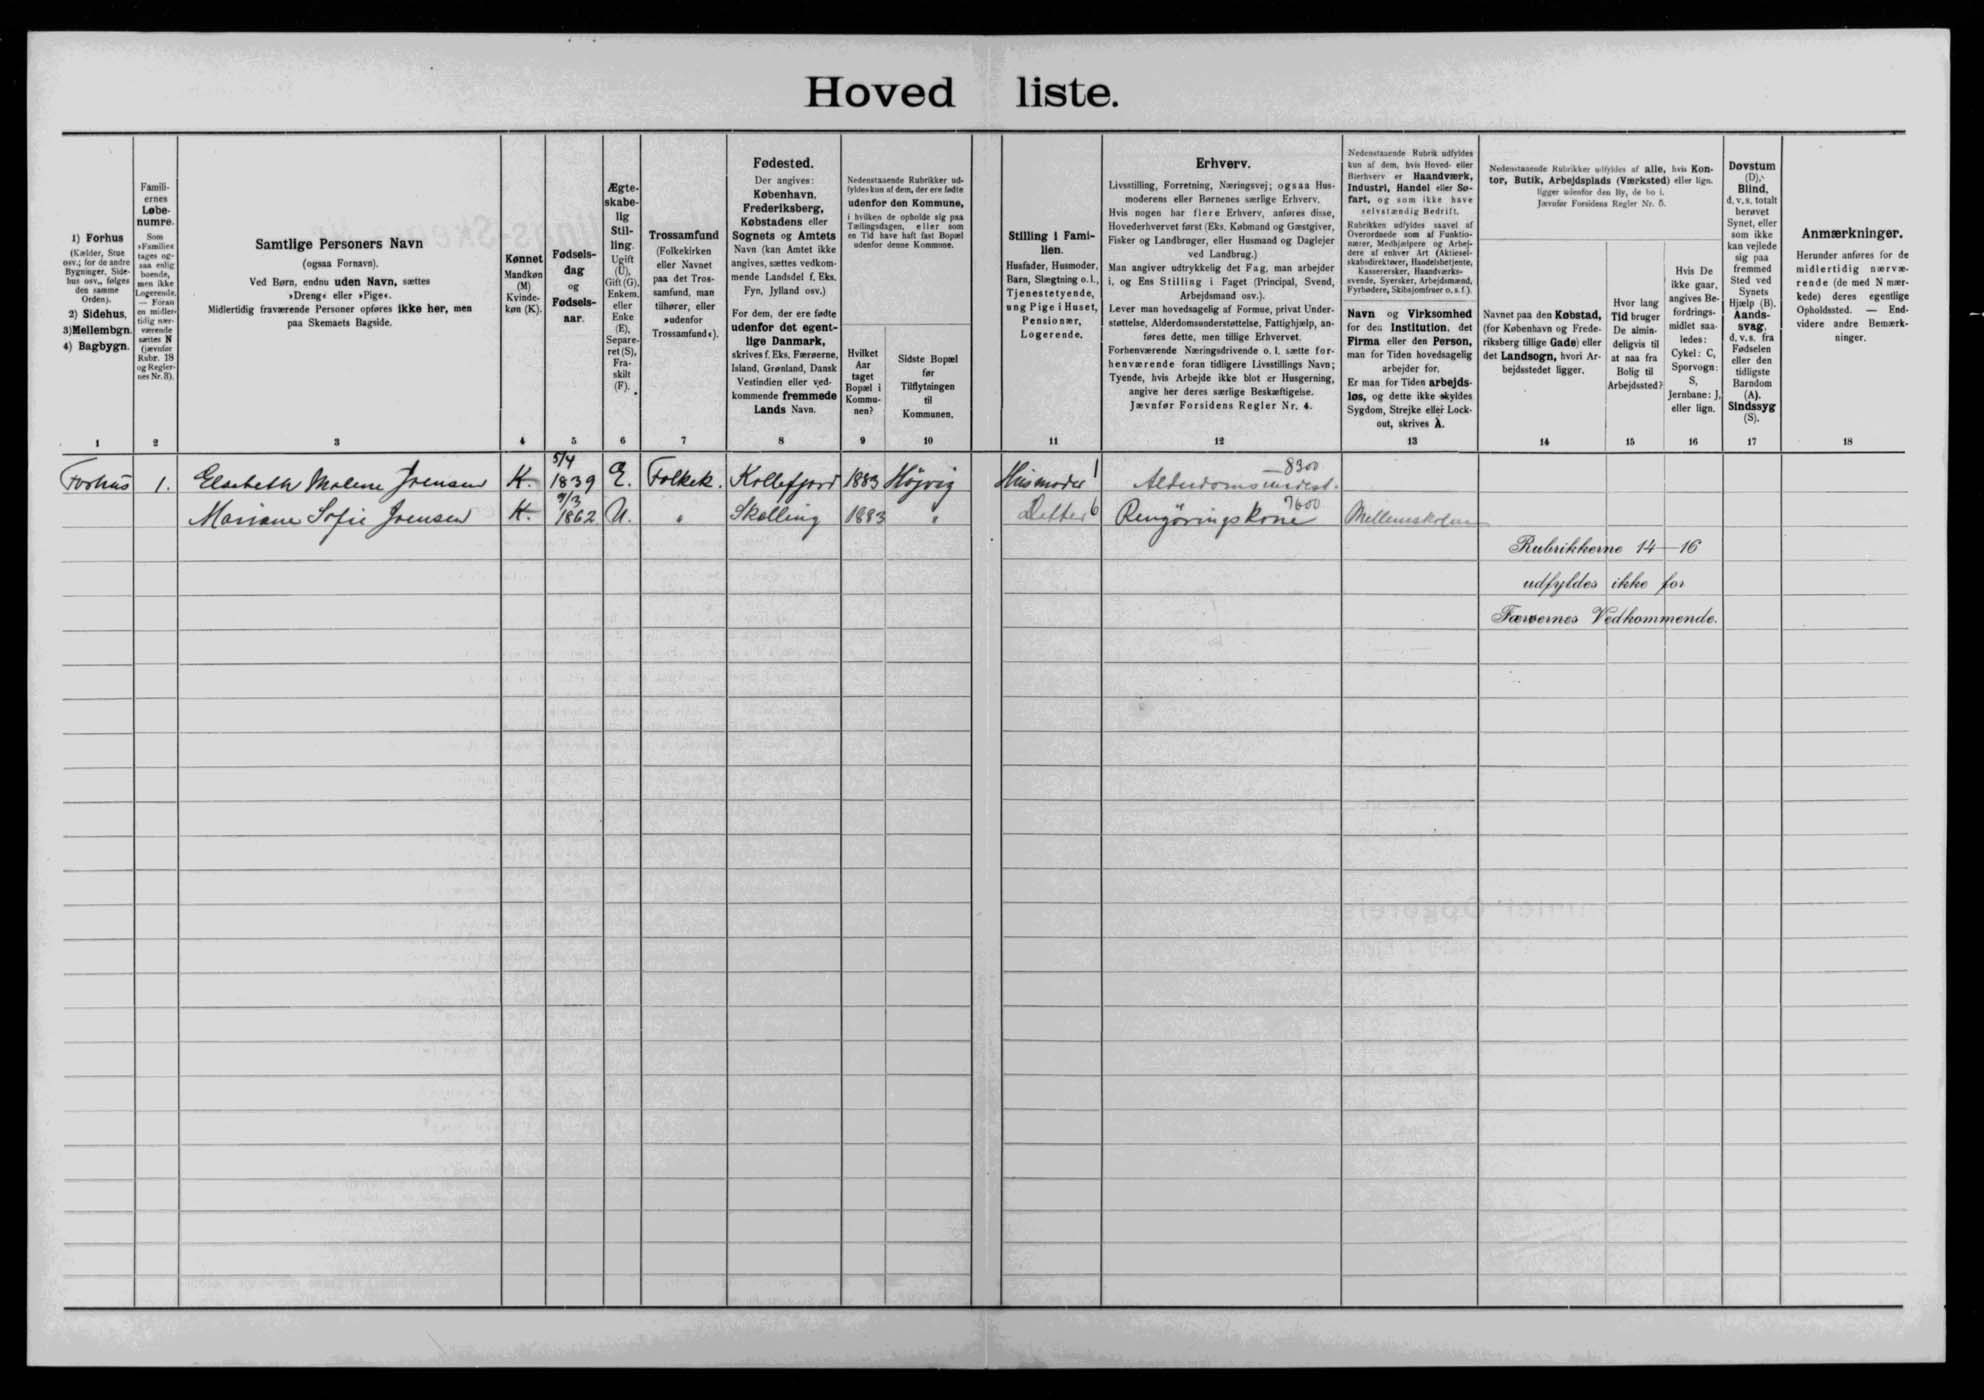 Hoved liste.
1) Forhus
(Kælder, Stue
osv.; for de andre
Bygninger, Side-
hus osv., følges
den samme
Orden).
2) Sidehus,
3) Mellembgn.
4) Bagbygn.
1
Famili-
ernes
Løbe-
numre.
Som
»Familie«
tages og-
saa enlig
boende,
men ikke
Logerende.
— Foran
en midler-
tidig nær-
værende
sættes N
(jævnfør
Rubr. 18
og Regler-
nes Nr. 3).
2
Samtlige Personers Navn
(ogsaa Fornavn).
Ved Børn, endnu uden Navn, sættes
»Dreng« eller »Pige«.
Midlertidig fraværende Personer opføres ikke her, men
paa Skemaets Bagside.
3
Kønnet
Mandkøn
(M)
Kvinde-
køn (K).
4
Fødsels-
dag
og
Fødsels-
aar.
5
Ægte-
skabe-
lig
Stil-
ling.
Ugift
(U),
Gift (G),
Enkem.
eller
Enke
(E),
Separe-
ret (S),
Fra-
skilt
(F).
6
Trossamfund
(Folkekirken
eller Navnet
paa det Tros-
samfund, man
tilhører, eller
»udenfor
Trossamfund«).
7
Fødested.
Der angives:
København,
Frederiksberg,
Købstadens eller
Sognets og Amtets
Navn (kan Amtet ikke
angives, sættes vedkom-
mende Landsdel f. Eks.
Fyn, Jylland osv.)
For dem, der ere fødte
udenfor det egent-
lige Danmark,
skrives f. Eks. Færøerne,
Island, Grønland, Dansk
Vestindien eller ved-
kommende fremmede
Lands Navn.
8
Nedenstaaende Rubrikker ud-
fyldes kun af dem, der ere fødte
udenfor den Kommune,
i hvilken de opholde sig paa
Tællingsdagen, eller som
en Tid have haft fast Bopæl
udenfor denne Kommune.
Hvilket
Aar
taget
Bopæl i
Kommu-
nen?
9
Sidste Bopæl
før
Tilflytningen
til
Kommunen.
10
Stilling i Fami-
lien.
Husfader, Husmoder,
Barn, Slægtning o.l.,
Tjenestetyende,
ung Pige i Huset,
Pensionær,
Logerende.
11
Erhverv.
Livsstilling, Forretning, Næringsvej; ogsaa Hus-
moderens eller Børnenes særlige Erhverv.
Hvis nogen har flere Erhverv, anføres disse,
Hovederhvervet først (Eks. Købmand og Gæstgiver,
Fisker og Landbruger, eller Husmand og Daglejer
ved Landbrug.)
Man angiver udtrykkelig det Fag, man arbejder
i, og Ens Stilling i Faget (Principal, Svend,
Arbejdsmand osv.).
Lever man hovedsagelig af Formue, privat Under-
støttelse, Alderdomsunderstøttelse, Fattighjælp, an-
føres dette, men tillige Erhvervet.
Forhenværende Næringsdrivende o. l. sætte for-
henværende foran tidligere Livsstillings Navn;
Tyende, hvis Arbejde ikke blot er Husgerning,
angive her deres særlige Beskæftigelse.
Jævnfør Forsidens Regler Nr. 4.
12
Nedenstaaende Rubrik udfyldes
kun af dem, hvis Hoved- eller
Bierhverv er Haandværk,
Industri, Handel eller Sø-
fart, og som ikke have
selvstændig Bedrift.
Rubrikken udfyldes saavel af
Overordnede som af Funktio-
nærer, Medhjælpere og Arbej-
dere af enhver Art (Aktiesel-
skabsdirektører, Handelsbetjente,
Kasserersker, Haandværks-
svende, Syersker, Arbejdsmænd,
Fyrbødere, Skibsjomfruer o. s. f.).
Navn og Virksomhed
for den Institution, det
Firma eller den Person,
man for Tiden hovedsagelig
arbejder for.
Er man for Tiden arbejds-
løs, og dette ikke skyldes
Sygdom, Strejke eller Lock-
out, skrives A.
13
Nedenstaaende Rubrikker udfyldes af alle, hvis Kon-
tor, Butik, Arbejdsplads (Værksted) eller lign.
ligger udenfor den By, de bo i.
Jævnfør Forsidens Regler Nr. 5.
Navnet paa den Købstad,
(for København og Frede-
riksberg tillige Gade) eller
det Landsogn, hvori Ar-
bejdsstedet ligger.
14
Hvor lang
Tid bruger
De almin-
deligvis til
at naa fra
Bolig til
Arbejdssted?
15
Hvis De
ikke gaar,
angives Be-
fordrings-
midlet saa-
ledes:
Cykel: C,
Sporvogn:
S,
Jernbane: J,
eller lign.
16
Døvstum
(D),
Blind,
d. v. s. totalt
berøvet
Synet, eller
som ikke
kan vejlede
sig paa
fremmed
Sted ved
Synets
Hjælp (B).
Aands-
svag,
d. v. s. fra
Fødselen
eller den
tidligste
Barndom
(A).
Sindssyg
(S).
17
Anmærkninger.
Herunder anføres for de
midlertidig nærvæ-
rende (de med N mær-
kede) deres egentlige
Opholdssted. — End-
videre andre Bemærk-
ninger.
18
Forhus 1. Elsebeth Malene Joensen K. 5/4 1839 E. Folkek. Kollefjord 1883 Højvig Husmoder 1 Alderdomsunderst. 8300
Mariane Sofie Joensen K. 9/3 1862 U. " Skælling 1883 " Datter 6 Rengøringskone 7600 Mellemskolen
Rubrikkerne 14—16
udfyldes ikke for
Færøernes Vedkommende.